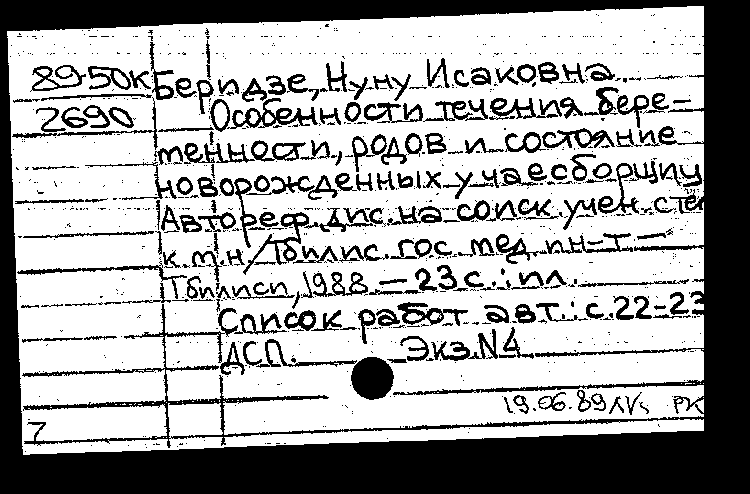 89-50К Беридзе, Нуну Исаковна.
2690 Особенности течения бере-
менности, родов и состояние
новорожденных у чаесборщиц
Автореф. дис. на соиск. учен. степ
к.м.н./Тбилис. гос. мед. ин-т —
Тбилиси, 1988. — 23 с.: ил.
Список работ авт.: с. 22-23
ДСП. Экз. N4
19.06.89 РК
7